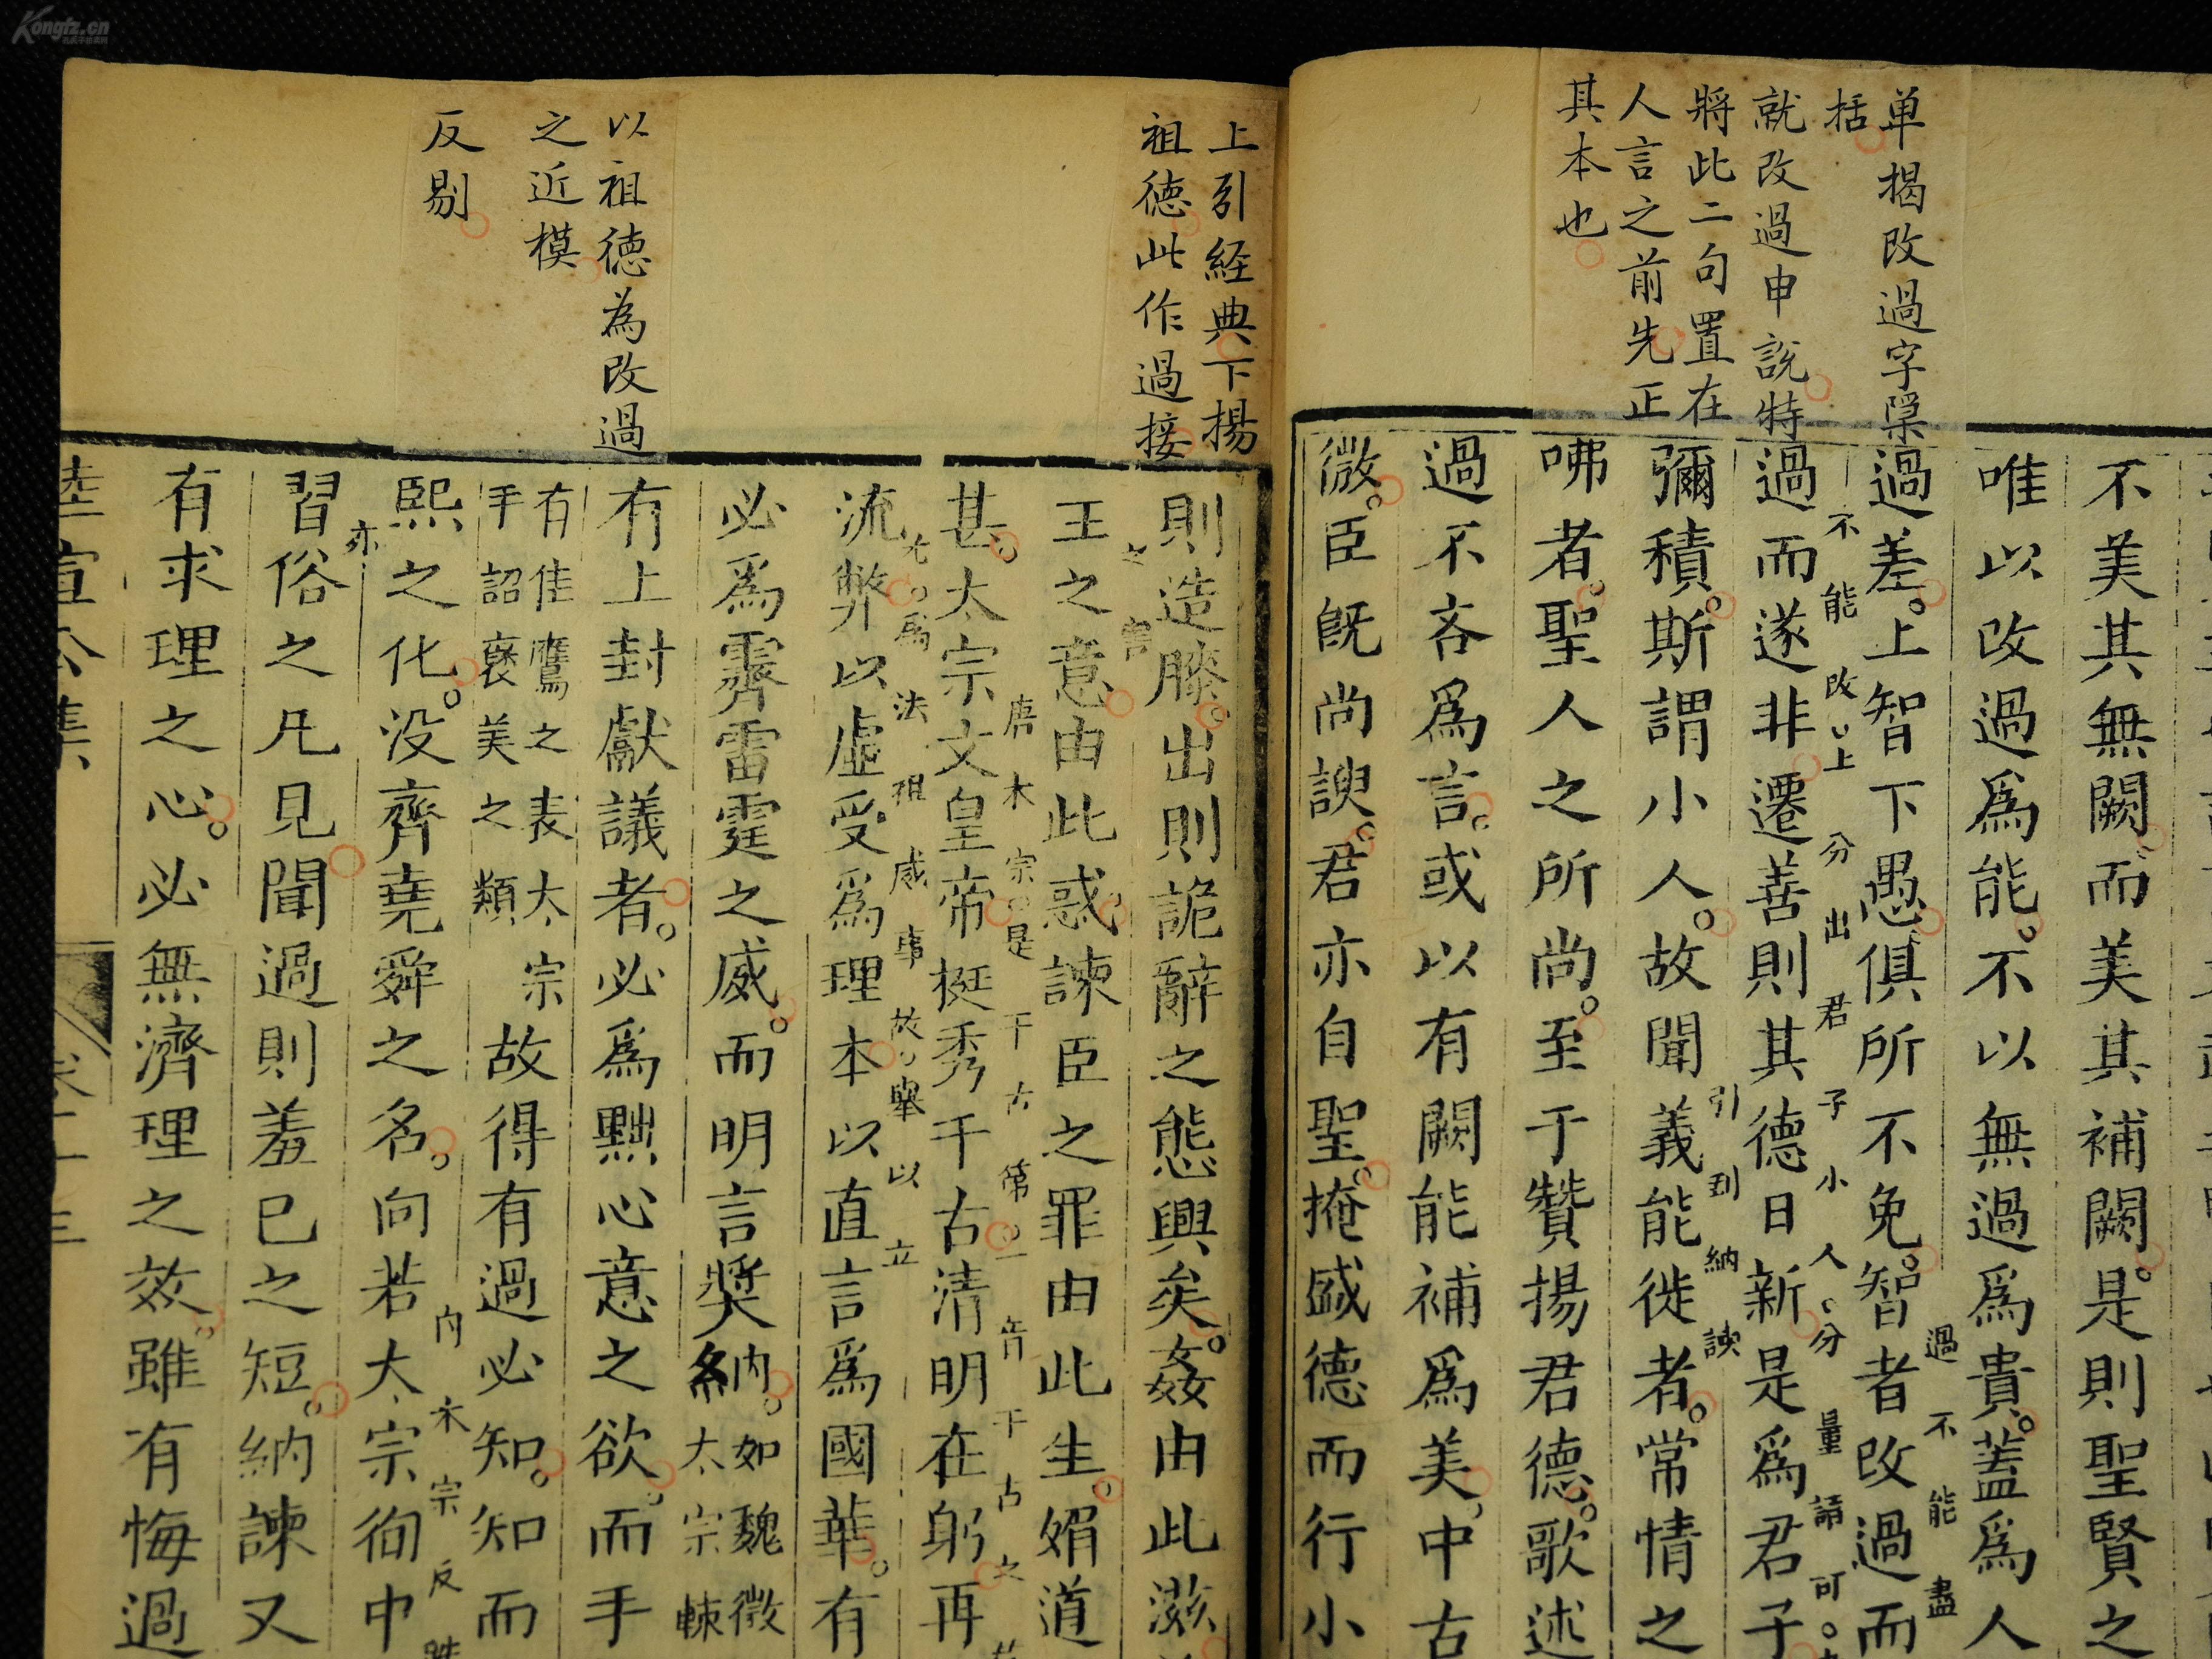 Kongfz.cn
单揭改過字槼
括
就改過申說特
將此二句置在
人言之前先正
其本也
不美其無闕而美其補闕是則聖賢之
唯以改過爲能不以無過爲貴蓋爲人
過差上智下愚俱所不免智者改過而
過不能盡
過而遂非遷善則其德日新是爲君子
不能改上分出君子小人分量請可
彌積斯謂小人故聞義能徙者常情之
引到納諫
咈者聖人之所尚至于贊揚君德歌述
過不吝爲言或以有闕能補爲美中古
微臣旣尚諛君亦自聖掩盛德而行小
上引経典下揚
祖德此作過接
以祖德為改過
之近模
反剔
則造膝出則詭辭之態興矣姦由此滋
王之意由此惑諫臣之罪由此生媚道
甚太宗文皇帝挺秀千古清明在躬再
唐太宗是千古第一音千古之
流弊以虛受爲理本以直言爲國華有
爲法祖感事故舉以立
必爲霽雷霆之威而明言奬納如魏徵
納太宗輙
有上封獻議者必爲黜心意之欲而手
有佳鷹之表太宗
手詔褒美之類
故得有過必知知而
熙之化没齊堯舜之名向若太宗徇中
太宗反
習俗之凡見聞過則羞已之短納諫又
亦
有求理之心必無濟理之效雖有悔過
陸宣公集